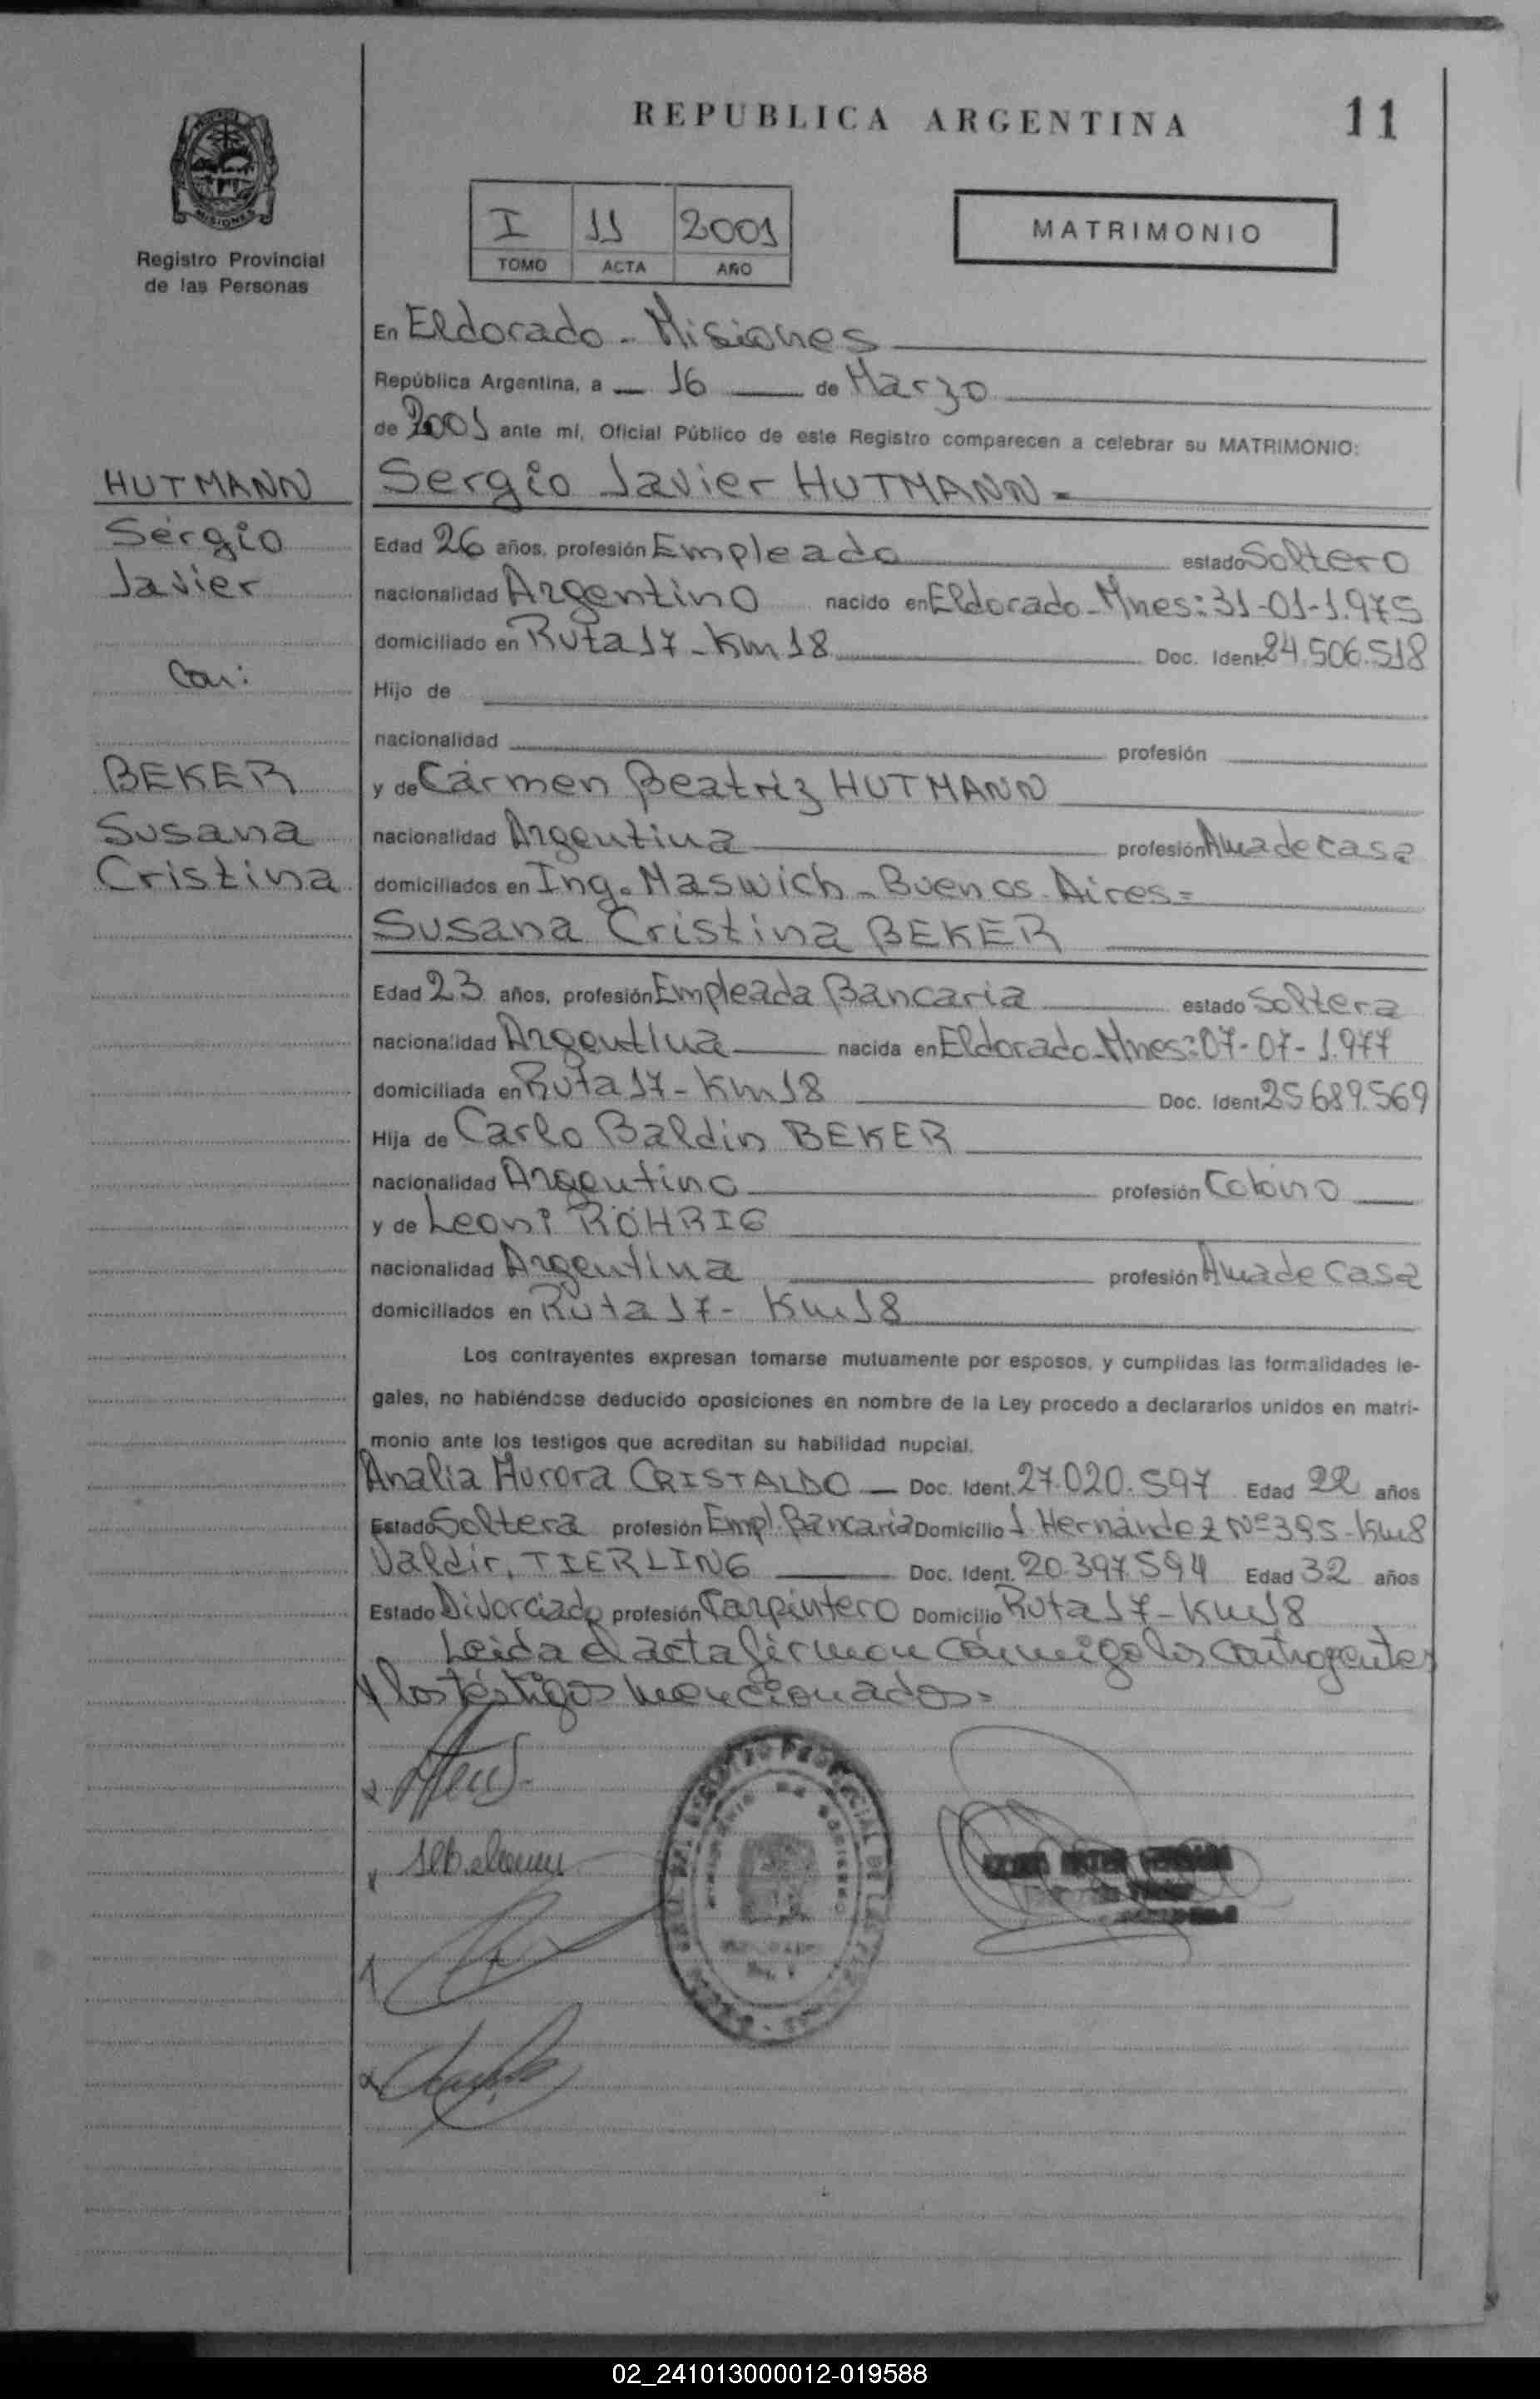 REPUBLICA ARGENTINA
11
MISIONES
Registro Provincial
de las Personas
I 11 2001
TOMO ACTA AÑO
MATRIMONIO
En Eldorado - Misiones
República Argentina, a 16 de Marzo
de 2001 ante mí, Oficial Público de este Registro comparecen a celebrar su MATRIMONIO:
HUTMANN
Sergio
Javier
Con:
BEKER
Susana
Cristina
Sergio Javier HUTMANN =
Edad 26 años, profesión Empleado estado Soltero
nacionalidad Argentino nacido en Eldorado - Mnes: 31-01-1.975
domiciliado en Ruta 17 - Km 18 Doc. Ident. 24.506.518
Hijo de
nacionalidad profesión
y de Carmen Beatriz HUTMANN
nacionalidad Argentina profesión Ama de casa
domiciliados en Ing. Maswich - Buenos Aires =
Susana Cristina BEKER
Edad 23 años, profesión Empleada Bancaria estado Soltera
nacionalidad Argentina nacida en Eldorado - Mnes: 07-07-1.977
domiciliada en Ruta 17 - Km 18 Doc. Ident. 25.689.569
Hija de Carlo Baldin BEKER
nacionalidad Argentino profesión Colono
y de Leoni RÖHRIG
nacionalidad Argentina profesión Ama de casa
domiciliados en Ruta 17 - Km 18
Los contrayentes expresan tomarse mutuamente por esposos, y cumplidas las formalidades le-
gales, no habiéndose deducido oposiciones en nombre de la Ley procedo a declararlos unidos en matri-
monio ante los testigos que acreditan su habilidad nupcial.
Analia Aurora CRISTALDO Doc. Ident. 27.020.597 Edad 22 años
Estado Soltera profesión Empl. Bancaria Domicilio J. Hernández Nº 395 - Km 8
Valdir, TIERLING Doc. Ident. 20.397.594 Edad 32 años
Estado Divorciado profesión Carpintero Domicilio Ruta 17 - Km 18
Leida el acta firman conmigo los contrayentes
y los testigos mencionados =
02_241013000012-019588